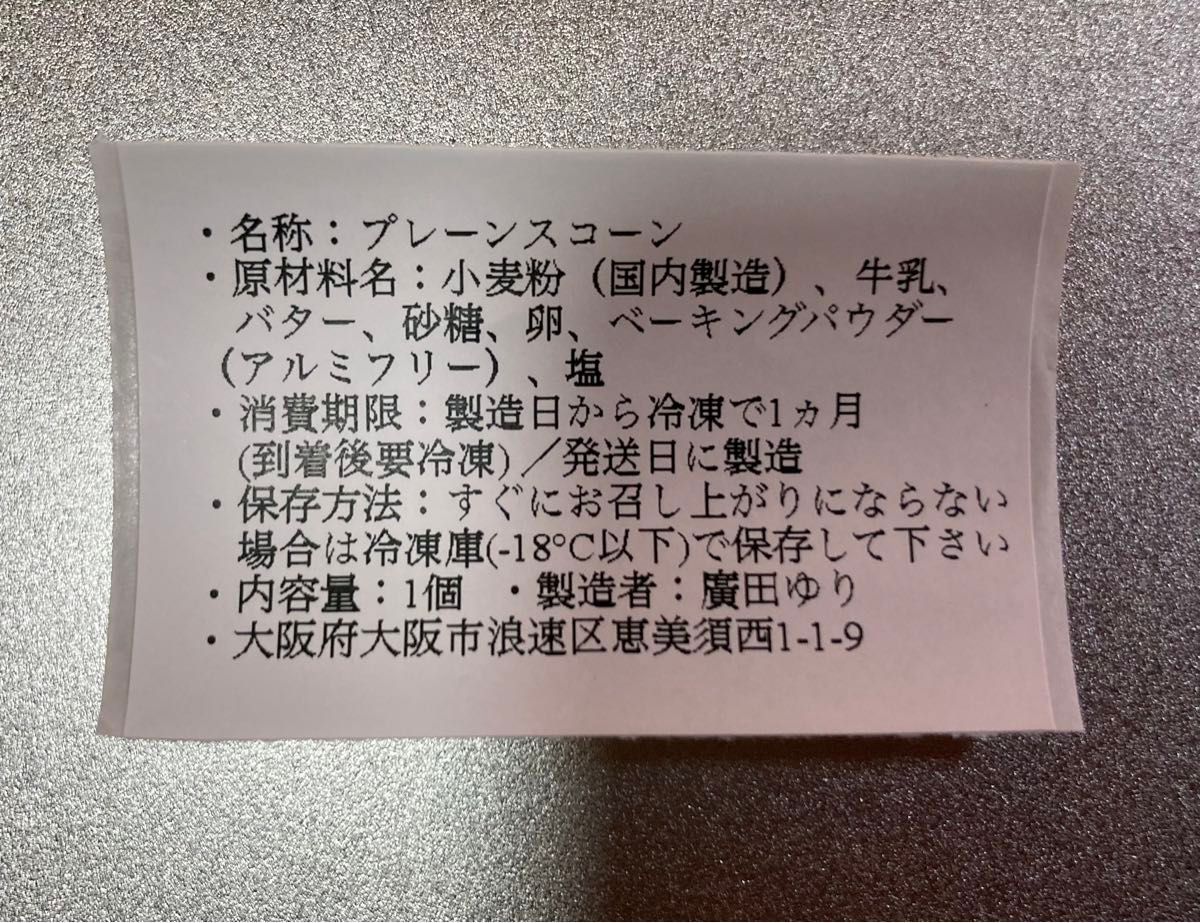 ・名称：プレーンスコーン
・原材料名：小麦粉（国内製造）、牛乳、
バター、砂糖、卵、ベーキングパウダー
（アルミフリー）、塩
・消費期限：製造日から冷凍で1ヵ月
(到着後要冷凍)／発送日に製造
・保存方法：すぐにお召し上がりにならない
場合は冷凍庫(-18°C以下)で保存して下さい
・内容量：1個　・製造者：廣田ゆり
・大阪府大阪市浪速区恵美須西1-1-9